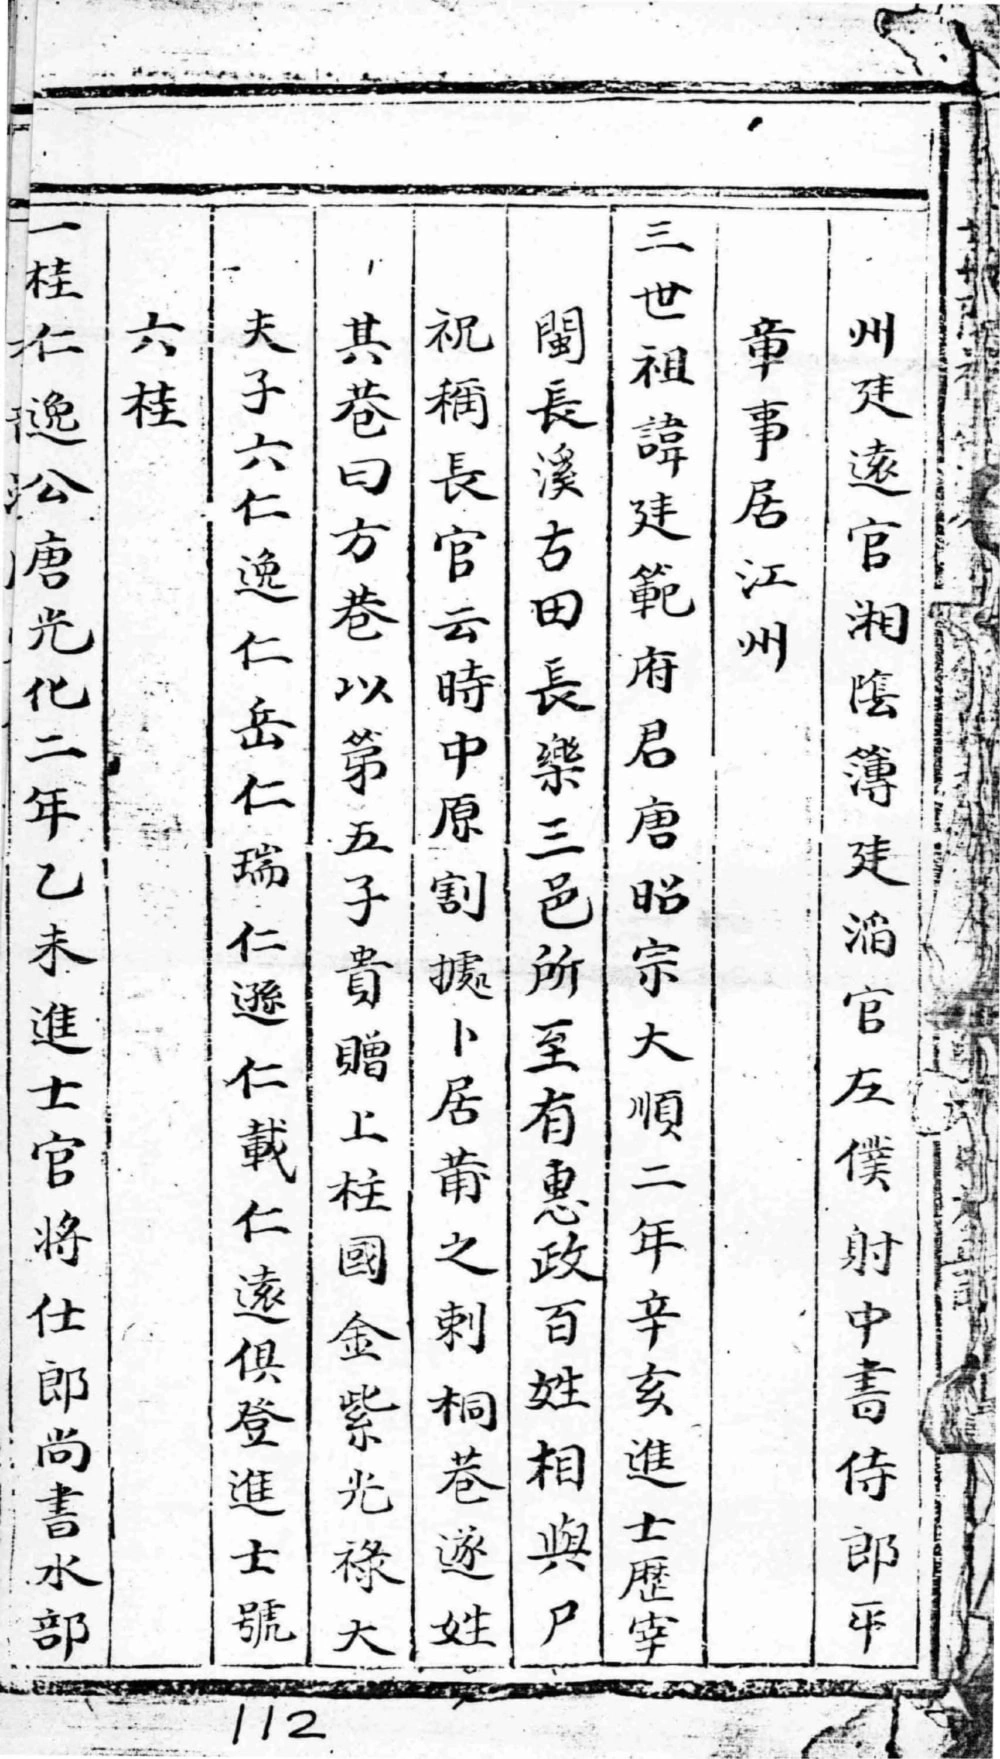 州廷遠官湘陰簿廷滔官左僕射中書侍郎平
章事居江州
三世祖諱廷範府君唐昭宗大順二年辛亥進士歷宰
閩長溪古田長樂三邑所至有惠政百姓相與尸
祝稱長官云時中原割據卜居莆之刺桐巷遂姓
其巷曰方巷以第五子貴贈上柱國金紫光祿大
夫子六仁逸仁岳仁瑞仁遜仁載仁遠俱登進士號
六桂
一桂仁逸公唐光化二年乙未進士官將仕郎尚書水部
112